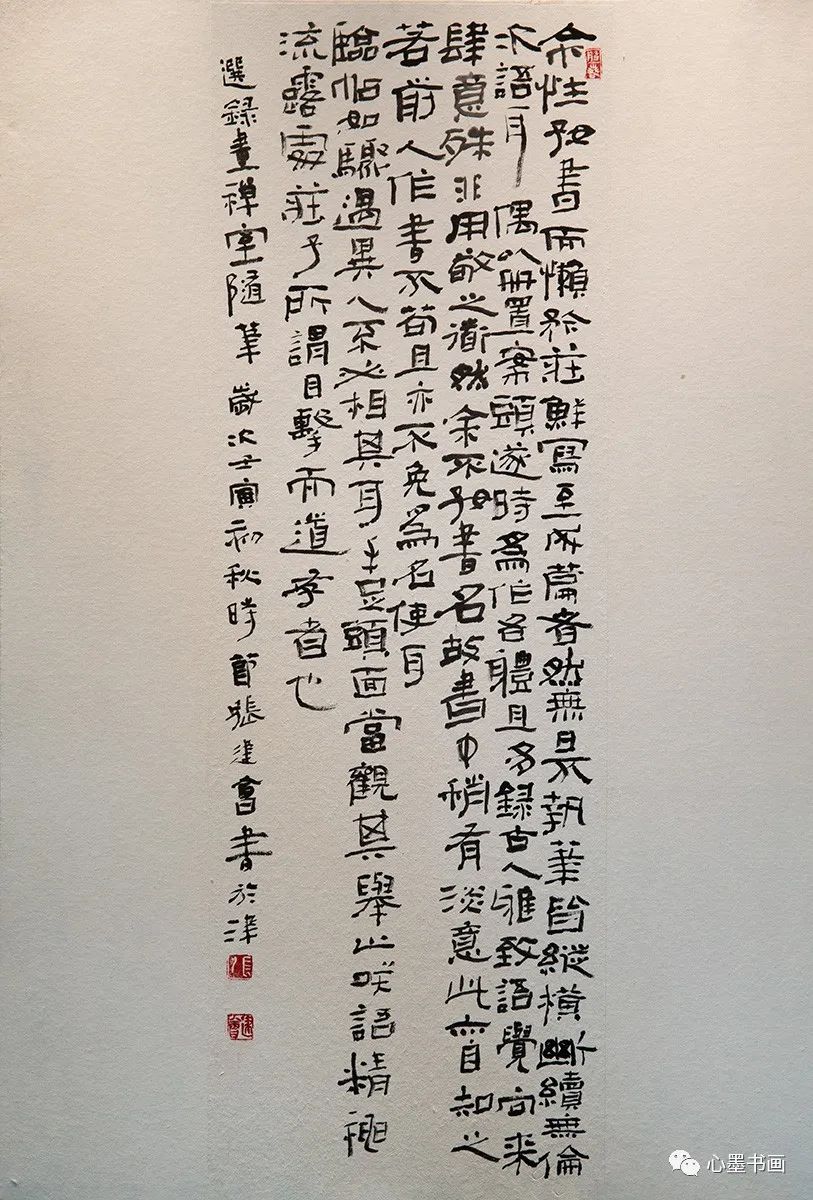 余性好書而懶矜莊鮮寫至成篇者然無日不執筆皆縱橫斷續無倫
次語耳偶以冊置案頭遂時為作各體且多錄古人雅致語覺向来
肆意殊非用敬之道然余不好書名故書中稍有淡意此亦自知之
若前人作書不苟且亦不免爲名使耳
臨帖如驟遇異人不必相其耳手足頭面當觀其舉止咲語精神
流露處莊子所謂目擊而道存者也
選録畫禪室隨筆歲次壬寅初秋時節張建會書於津
建會
心墨书画